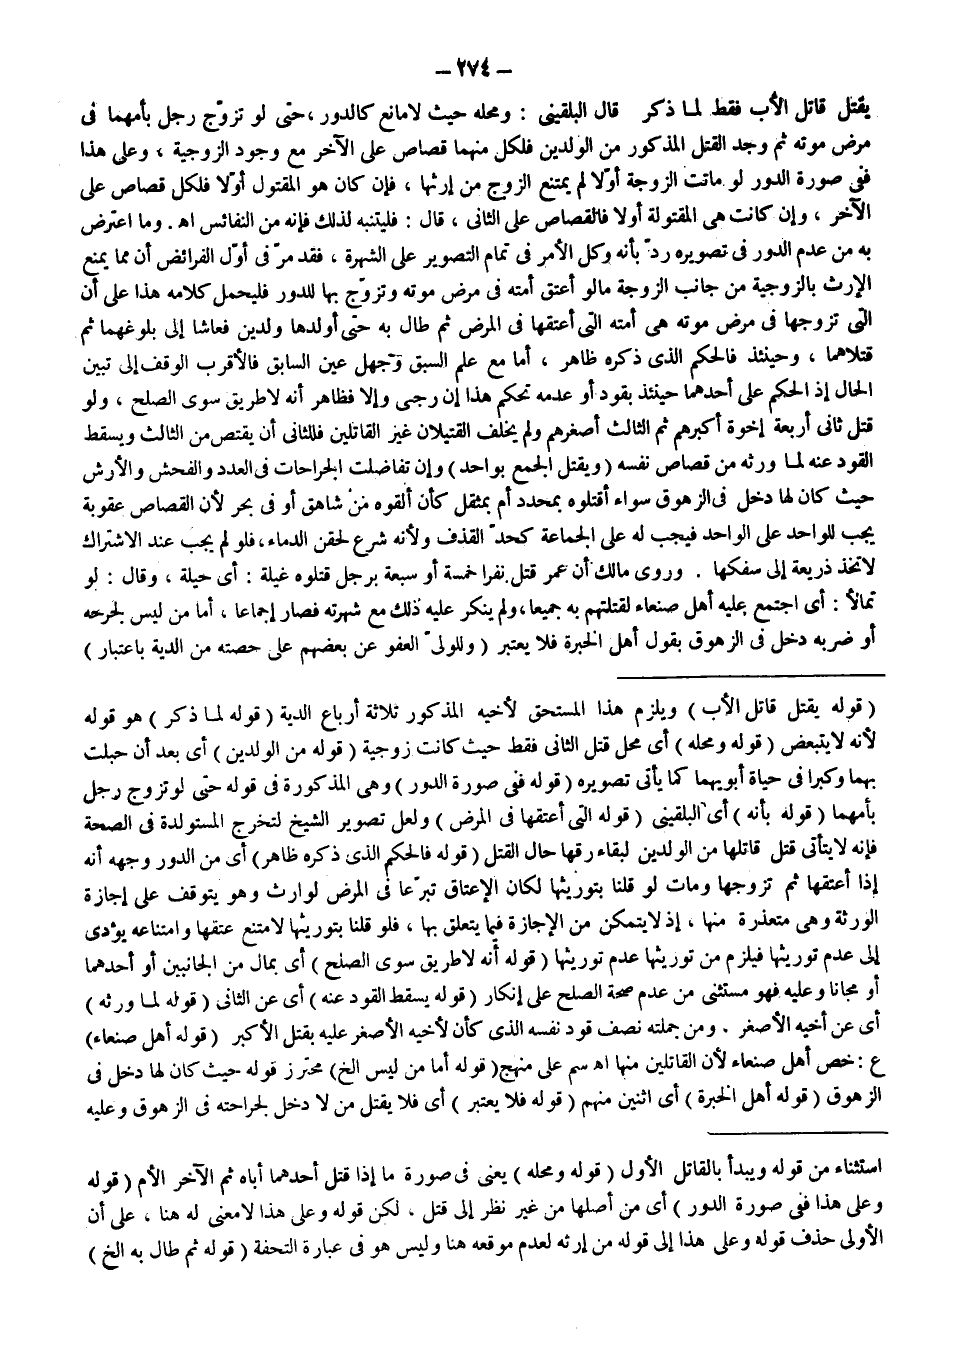 – ٢٧٤ –
يقتل قاتل الأب فقط لما ذكر قال البلقينى : ومحله حيث لامانع كالدور ، حتى لو تزوّج رجل بأمهما فى
مرض موته ثم وجد القتل المذكور من الولدين فلكل منهما قصاص على الآخر مع وجود الزوجية ، وعلى هذا
ففى صورة الدور لو ماتت الزوجة أوّلا لم يمتنع الزوج من إرثها ، فإن كان هو المقتول أوّلا فلكل قصاص على
الآخر ، وإن كانت هى المقتولة أولا فالقصاص على الثانى ، قال : فليتنبه لذلك فإنه من النفائس اه . وما اعترض
به من عدم الدور فى تصويره ردّ بأنه وكل الأمر فى تمام التصوير على الشهرة ، فقد مرّ فى أوّل الفرائض أن مما يمنع
الإرث بالزوجية من جانب الزوجة مالو أعتق أمته فى مرض موته وتزوّج بها للدور فليحمل كلامه هذا على أن
التى تزوجها فى مرض موته هى أمته التى أعتقها فى المرض ثم طال به حتى أولدها ولدين فعاشا إلى بلوغهما ثم
قتلاهما ، وحينئذ فالحكم الذى ذكره ظاهر ، أما مع علم السبق وجهل عين السابق فالأقرب الوقف إلى تبين
الحال إذ الحكم على أحدهما حينئذ بقود أو عدمه تحكم هذا إن رجى وإلا فظاهر أنه لاطريق سوى الصلح ، ولو
قتل ثانى أربعة إخوة أكبرهم ثم الثالث أصغرهم ولم يخلف القتيلان غير القاتلين فللثانى أن يقتص من الثالث ويسقط
القود عنه لما ورثه من قصاص نفسه ( ويقتل الجمع بواحد ) وإن تفاضلت الجراحات فى العدد والفحش والأرش
حيث كان لها دخل فى الزهوق سواء أقتلوه بمحدد أم بمثقل كأن ألقوه من شاهق أو فى بحر لأن القصاص عقوبة
يجب للواحد على الواحد فيجب له على الجماعة كحدّ القذف ولأنه شرع لحقن الدماء ، فلو لم يجب عند الاشتراك
لاتخذ ذريعة إلى سفكها . وروى مالك أن عمر قتل نفرا خمسة أو سبعة برجل قتلوه غيلة : أى حيلة ، وقال : لو
تمالأ : أى اجتمع عليه أهل صنعاء لقتلتهم به جميعا ، ولم ينكر عليه ذلك مع شهرته فصار إجماعا ، أما من ليس لجرحه
أو ضربه دخل فى الزهوق بقول أهل الخبرة فلا يعتبر ( وللولىّ العفو عن بعضهم على حصته من الدية باعتبار )
( قوله يقتل قاتل الأب ) ويلزم هذا المستحق لأخيه المذكور ثلاثة أرباع الدية ( قوله لما ذكر ) هو قوله
لأنه لايتبعض ( قوله ومحله ) أى محل قتل الثانى فقط حيث كانت زوجية ( قوله من الولدين ) أى بعد أن حبلت
بهما وكبرا فى حياة أبويهما كما يأتى تصويره ( قوله ففى صورة الدور ) وهى المذكورة فى قوله حتى لو تزوج رجل
بأمهما ( قوله بأنه ) أى البلقينى ( قوله التى أعتقها فى المرض ) ولعل تصوير الشيخ لتخرج المستولدة فى الصحة
فإنه لايتأتى قتل قاتلها من الولدين لبقاء رقها حال القتل ( قوله فالحكم الذى ذكره ظاهر ) أى من الدور وجهه أنه
إذا أعتقها ثم تزوجها ومات لو قلنا بتوريثها لكان الإعتاق تبرّعا فى المرض لوارث وهو يتوقف على إجازة
الورثة وهى متعذرة منها ، إذ لايتمكن من الإجازة فيما يتعلق بها ، فلو قلنا بتوريثها لامتنع عتقها وامتناعه يؤدى
إلى عدم توريثها فيلزم من توريثها عدم توريثها ( قوله أنه لاطريق سوى الصلح ) أى بمال من الجانبين أو أحدهما
أو مجانا وعليه فهو مستثنى من عدم صحة الصلح على إنكار ( قوله يسقط القود عنه ) أى عن الثانى ( قوله لما ورثه )
أى عن أخيه الأصغر . ومن جملته نصف قود نفسه الذى كأن لأخيه الأصغر عليه بقتل الأكبر ( قوله أهل صنعاء )
ع : خص أهل صنعاء لأن القاتلين منها اه سم على منهج ( قوله أما من ليس الخ ) محترز قوله حيث كان لها دخل فى
الزهوق ( قوله أهل الخبرة ) أى اثنين منهم ( قوله فلا يعتبر ) أى فلا يقتل من لا دخل لجراحته فى الزهوق وعليه
استثناء من قوله ويبدأ بالقاتل الأول ( قوله ومحله ) يعنى فى صورة ما إذا قتل أحدهما أباه ثم الآخر الأم ( قوله
وعلى هذا ففى صورة الدور ) أى من أصلها من غير نظر إلى قتل ، لكن قوله وعلى هذا لامعنى له هنا ، على أن
الأولى حذف قوله وعلى هذا إلى قوله من إرثه لعدم موقعه هنا وليس هو فى عبارة التحفة ( قوله ثم طال به الخ )